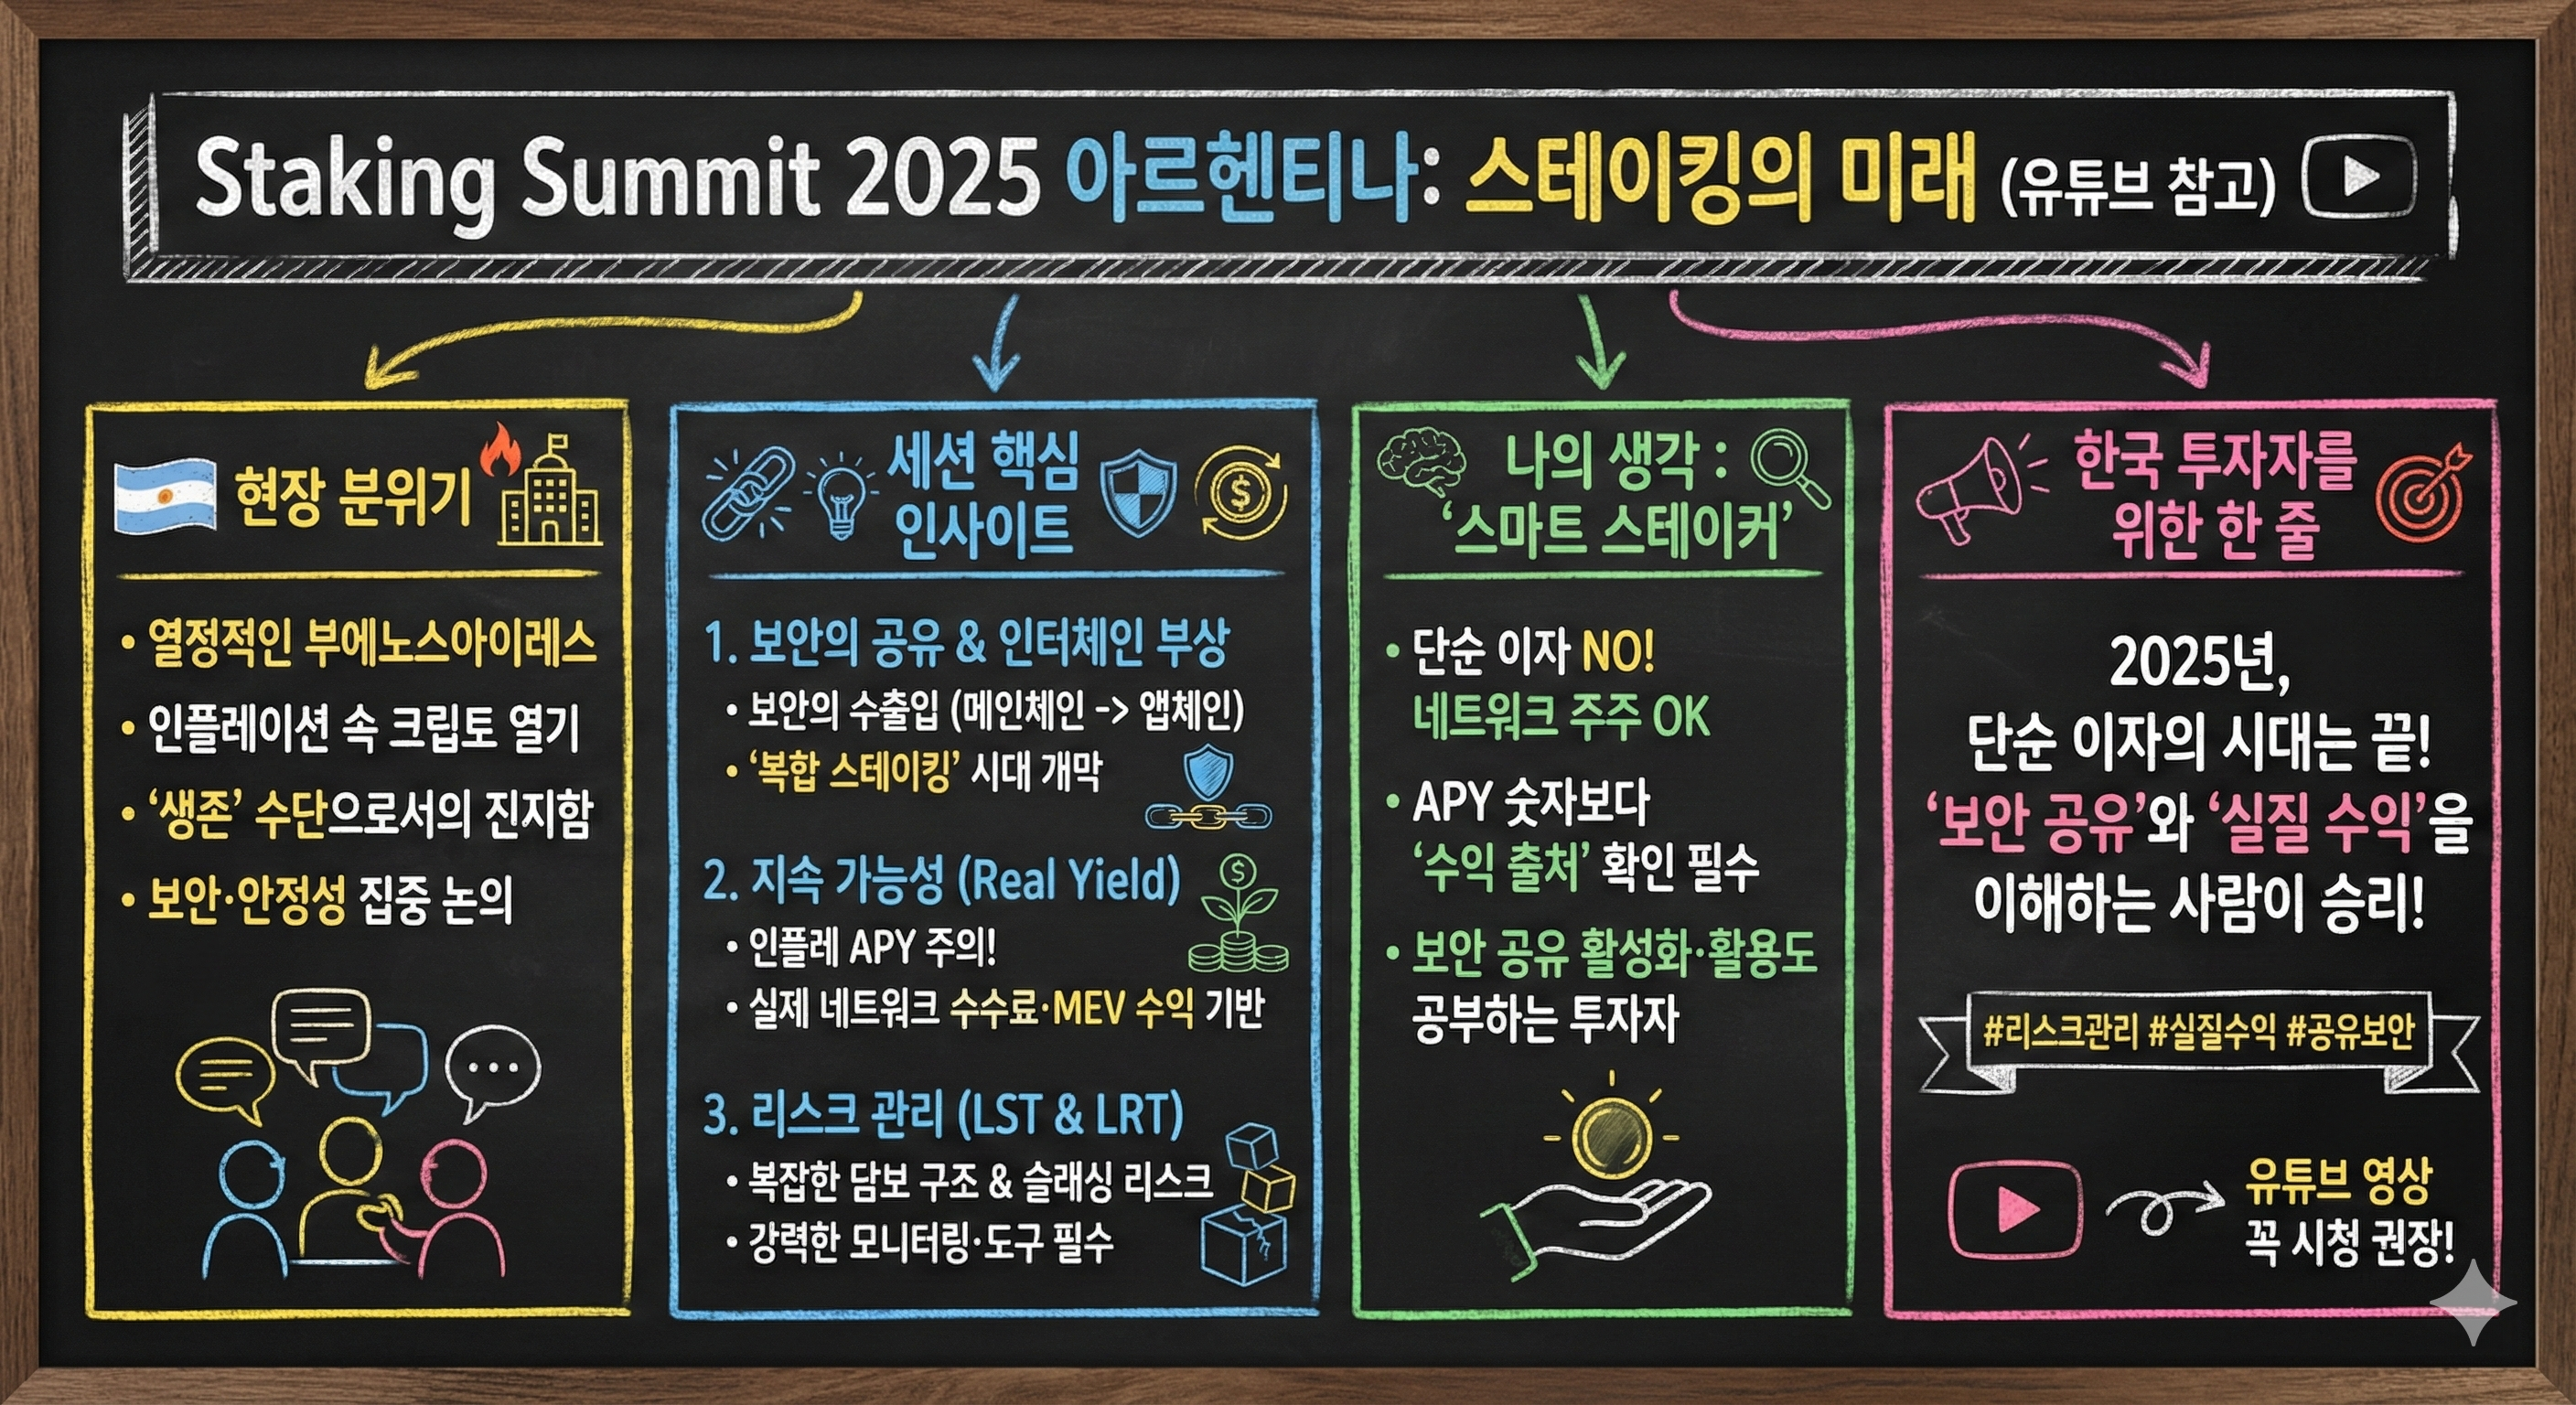 Staking Summit 2025 아르헨티나: 스테이킹의 미래 (유튜브 참고)
현장 분위기
• 열정적인 부에노스아이레스
• 인플레이션 속 크립토 열기
• ‘생존’ 수단으로서의 진지함
• 보안·안정성 집중 논의
세션 핵심
인사이트
1. 보안의 공유 & 인터체인 부상
• 보안의 수출입 (메인체인 -> 앱체인)
• ‘복합 스테이킹’ 시대 개막
2. 지속 가능성 (Real Yield)
• 인플레 APY 주의!
• 실제 네트워크 수수료·MEV 수익 기반
3. 리스크 관리 (LST & LRT)
• 복잡한 담보 구조 & 슬래싱 리스크
• 강력한 모니터링·도구 필수
나의 생각 :
‘스마트 스테이커’
• 단순 이자 NO!
네트워크 주주 OK
• APY 숫자보다
‘수익 출처’ 확인 필수
• 보안 공유 활성화·활용도
공부하는 투자자
한국 투자자를
위한 한 줄
2025년,
단순 이자의 시대는 끝!
‘보안 공유’와 ‘실질 수익’을
이해하는 사람이 승리!
#리스크관리 #실질수익 #공유보안
유튜브 영상
꼭 시청 권장!